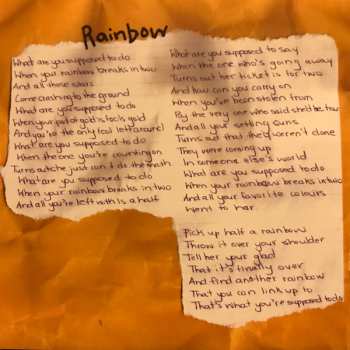 Rainbow
What are you supposed to do
When your rainbow breaks in two
And all those stars
Come crashing to the ground
What are you supposed to do
When your pot of gold is fools gold
And you're the only fool left around
What are you supposed to do
When the one you're counting on
Turns out she just can't do the math
What are you supposed to do
When your rainbow breaks in two
And all you're left with is a half
What are you supposed to say
When the one who's going away
Turns out her ticket is for two
And how can you carry on
When you've been stolen from
By the very one who said she'd be true
And all your setting suns
Turns out that they weren't done
They were coming up
In someone else's world
What are you supposed to do
When your rainbow breaks in two
And all your favorite colours
Went to her
Pick up half a rainbow
Throw it over your shoulder
Tell her your glad
That it's finally over
And find another rainbow
That you can link up to
That's what you're supposed to do